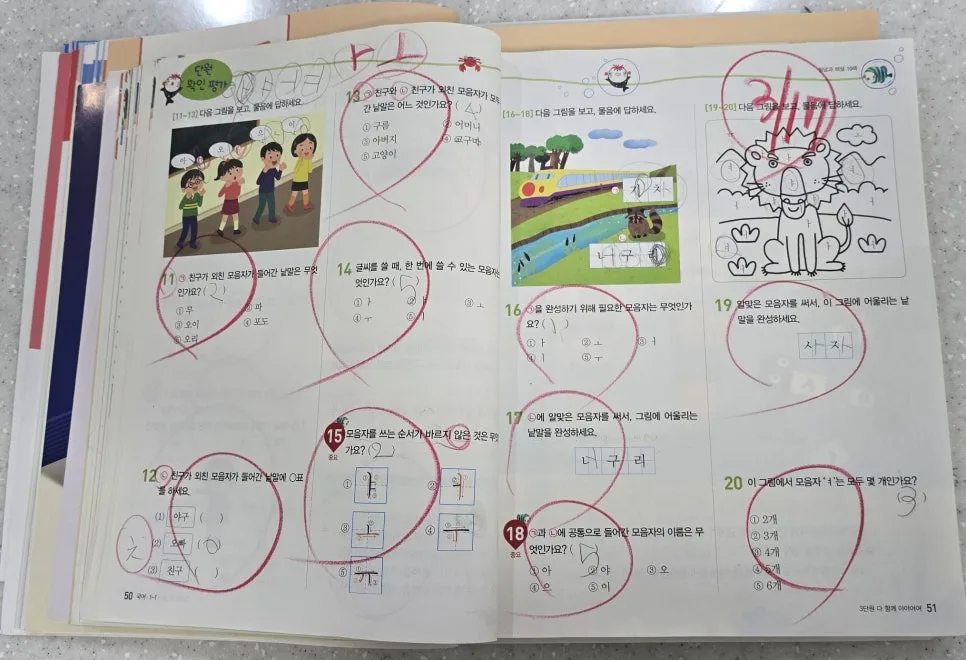 단원
확인 평가
[11~13] 다음 그림을 보고, 물음에 답하세요.
11 ㉠ 친구가 외친 모음자가 들어간 낱말은 무엇
인가요? ( 2 )
① 무
② 파
③ 오이
④ 포도
⑤ 오리
12 ㉡ 친구가 외친 모음자가 들어간 낱말에 ○표
를 하세요.
(1) 야구 ( )
(2) 오빠 ( ○ )
(3) 친구 ( )
50 국어 1-1
ㅏ ㅗ
13 ㉠ 친구와 ㉡ 친구가 외친 모음자가 모두
간 낱말은 어느 것인가요? ( 4 )
① 구름
② 어머니
③ 아버지
④ 코구마
⑤ 고양이
14 글씨를 쓸 때, 한 번에 쓸 수 있는 모음자는
엇인가요? ( 5 )
① ㅏ
② ㅑ
③ ㅗ
④ ㅜ
⑤ ㅣ
15 모음자를 쓰는 순서가 바르지 않은 것은 무엇
가요? ( 2 )
중요
①
②
③
④
⑤
[16~18] 다음 그림을 보고, 물음에 답하세요.
기 차
너 구 리
16 ㉠을 완성하기 위해 필요한 모음자는 무엇인가
요? ( 1 )
① ㅏ
② ㅗ
③ ㅓ
④ ㅣ
⑤ ㅜ
17 ㉡에 알맞은 모음자를 써서, 그림에 어울리는
낱말을 완성하세요.
너 구 리
18 ㉠과 ㉡에 공통으로 들어간 모음자의 이름은 무
엇인가요? ( 5 )
중요
① 아
② 야
③ 오
④ 으
⑤ 이
3/17
[19~20] 다음 그림을 보고, 물음에 답하세요.
19 알맞은 모음자를 써서, 이 그림에 어울리는 낱
말을 완성하세요.
사 자
20 이 그림에서 모음자 'ㅕ'는 모두 몇 개인가요?
( 3 )
① 2개
② 3개
③ 4개
④ 5개
⑤ 6개
3단원 다 함께 아야어여 51